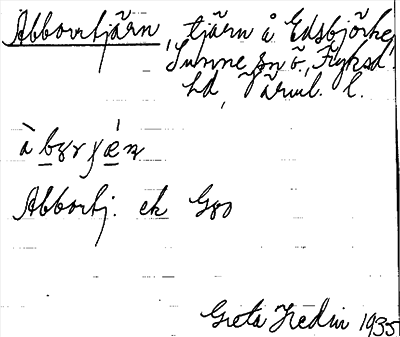 Abborrtjärn, tjärn å Edsbjörke,
Sunne sn ö., Fryksd.
hd, Värml. l.
à bɞrɣǽn
Abbortj. ek G80
Greta Hedin 1935